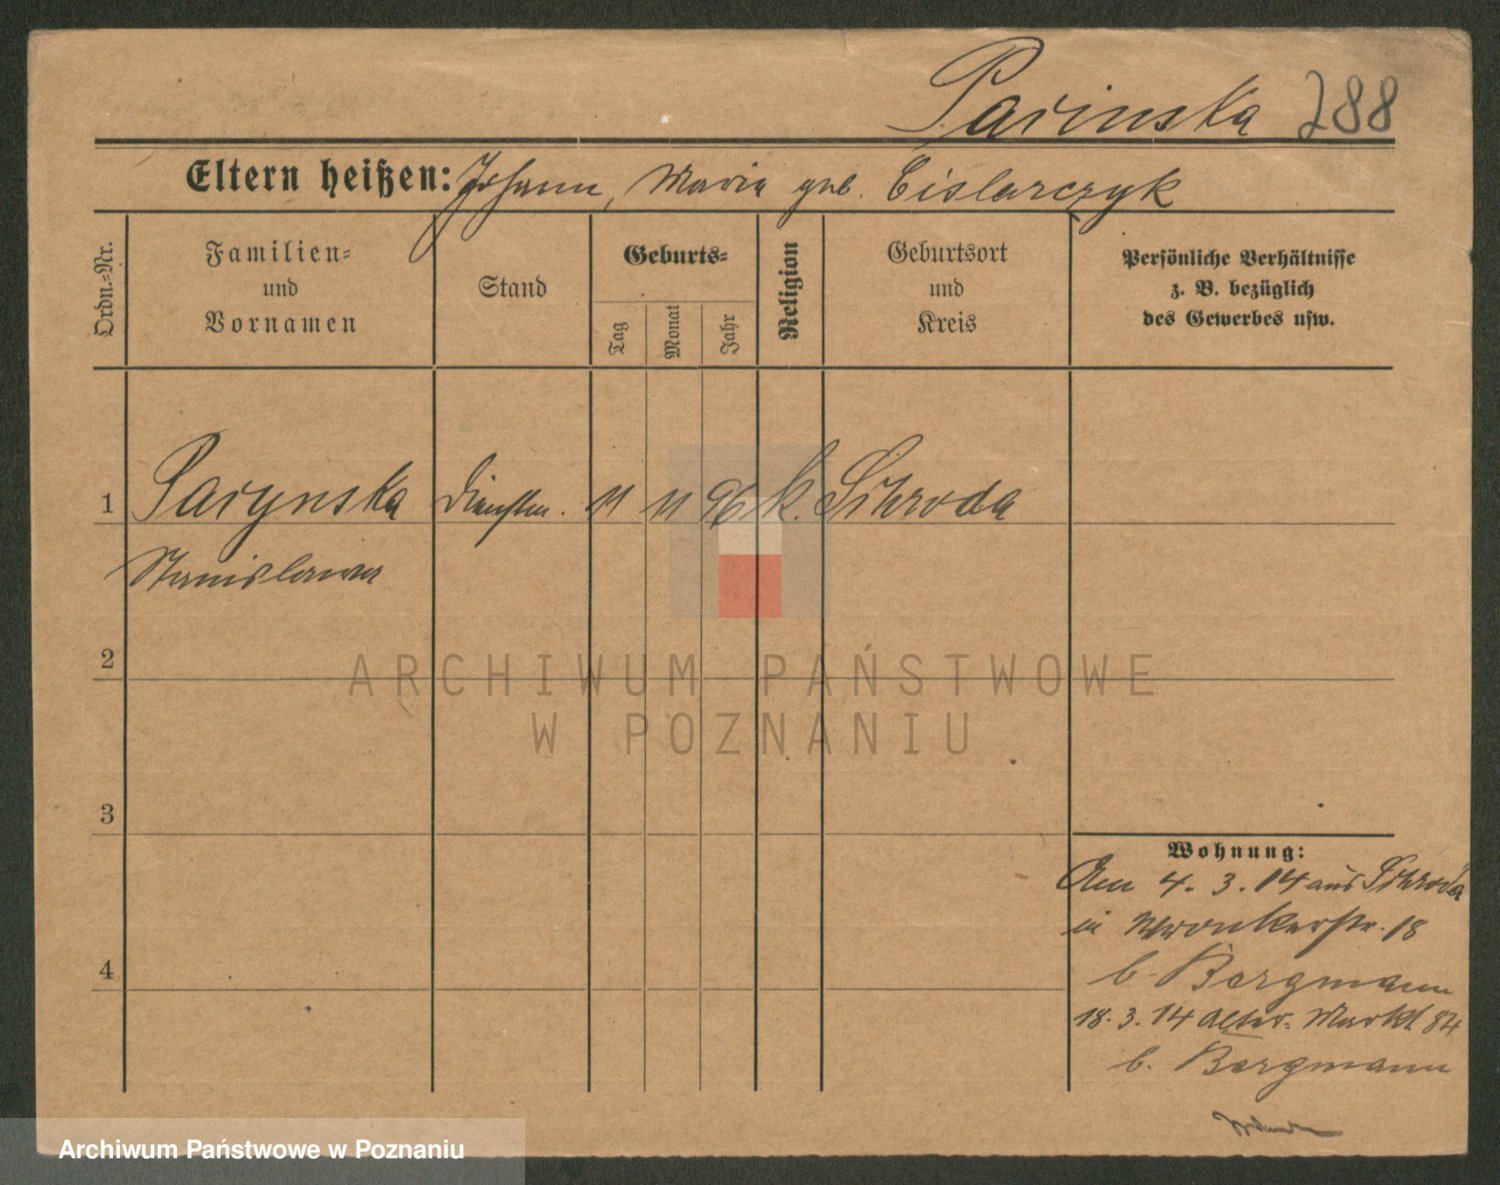 Parinska 288
Eltern heißen: Johann, Maria geb. Cislarczyk
Ordn.-Nr.
Familien-
und
Vornamen
Stand
Geburts-
Tag
Monat
Jahr
Religion
Geburtsort
und
Kreis
Persönliche Verhältnisse
z. B. bezüglich
des Gewerbes usw.
1 Parynska Dienstm. 11 11 96 k. Schroda
Stanislawa
2
3
4
Wohnung:
Am 4. 3. 14 aus Schroda
in Wronkerstr. 18
b. Bergmann
18. 3. 14 Alter. Markt 84
b. Bergmann
ARCHIWUM PAŃSTWOWE
W POZNANIU
Archiwum Państwowe w Poznaniu